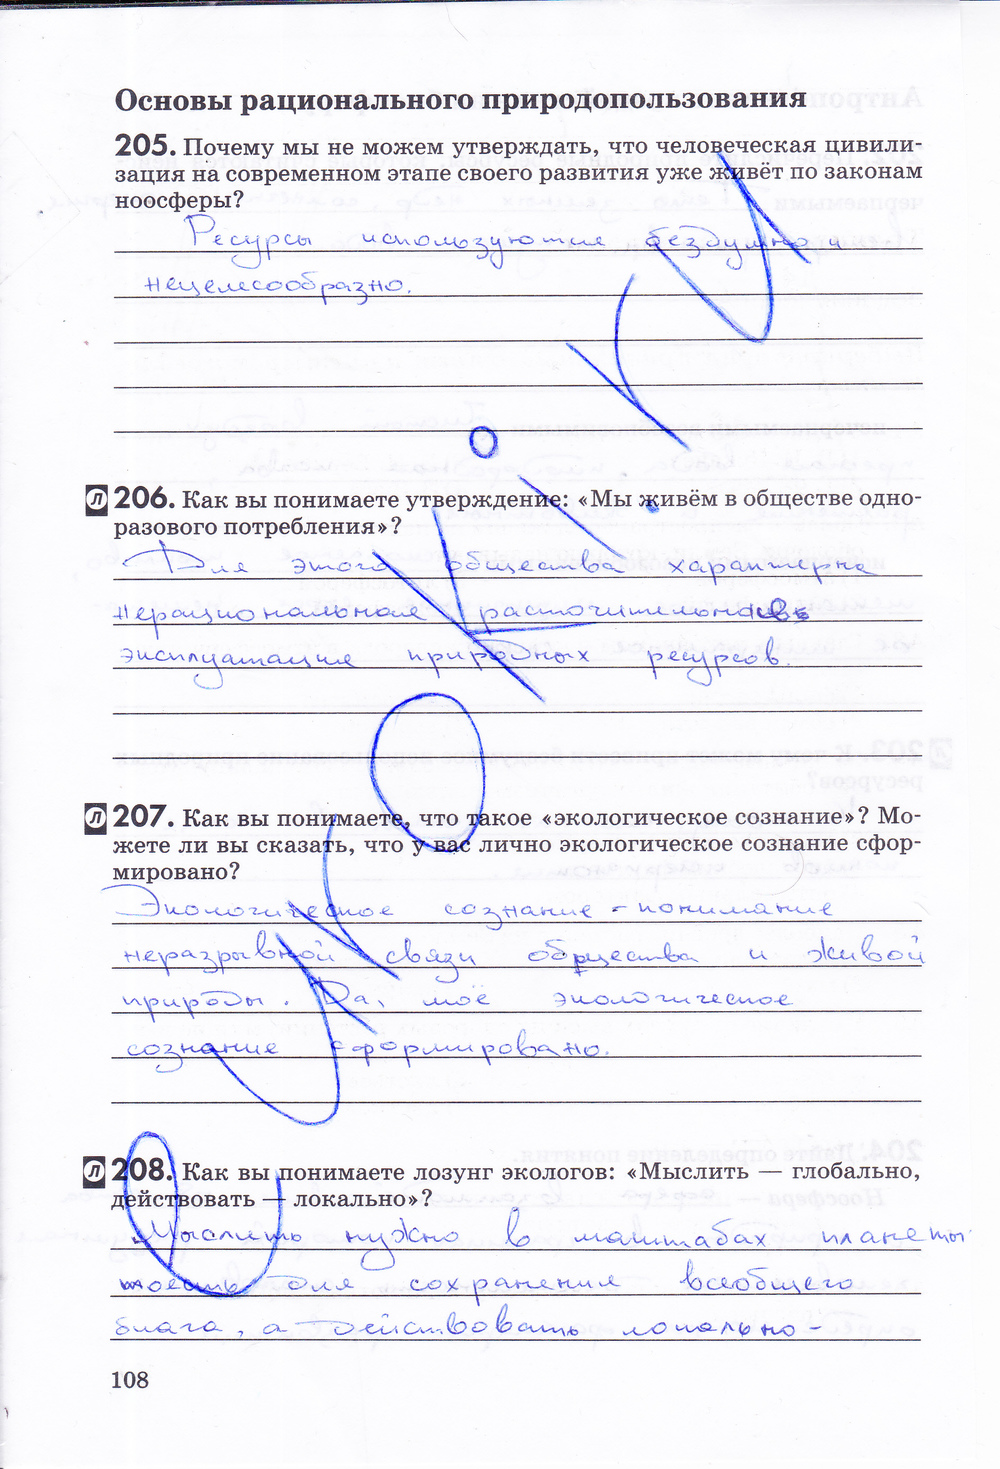 Основы рационального природопользования
205. Почему мы не можем утверждать, что человеческая цивили-
зация на современном этапе своего развития уже живёт по законам
ноосферы?
Ресурсы используются бездумно и
нецелесообразно.
Л 206. Как вы понимаете утверждение: «Мы живём в обществе одно-
разового потребления»?
Для этого общества характерна
нерациональная расточительная
эксплуатация природных ресурсов.
Л 207. Как вы понимаете, что такое «экологическое сознание»? Мо-
жете ли вы сказать, что у вас лично экологическое сознание сфор-
мировано?
Экологическое сознание - понимание
неразрывной связи общества и живой
природы. Да, моё экологическое
сознание сформировано.
Л 208. Как вы понимаете лозунг экологов: «Мыслить — глобально,
действовать — локально»?
Мыслить нужно в масштабах планеты
тоесть для сохранения всеобщего
блага, а действовать локально -
108